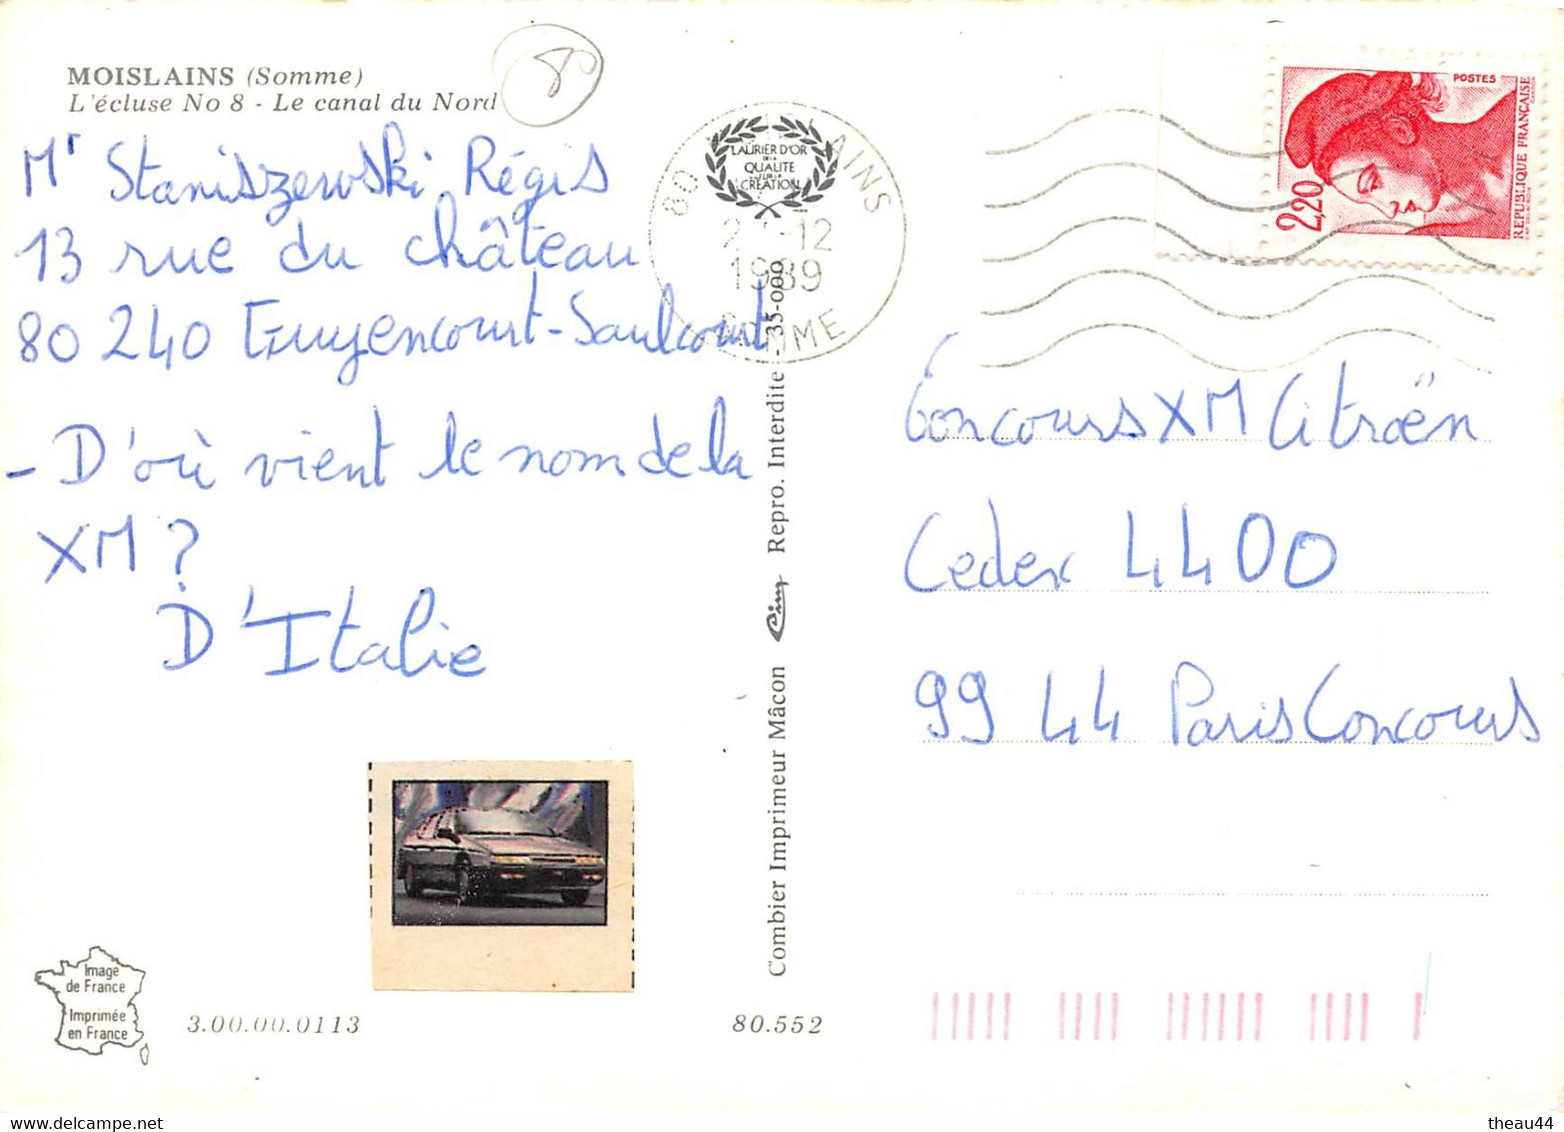 MOISLAINS (Somme)
L'écluse No 8 - Le canal du Nord
80
Mr Staniszewski Régis
13 rue du château
80 240 Guyencourt-Saulcourt
- D'où vient le nom de la
XM ?
D'Italie
Image
de France
Imprimée
en France
3.00.00.0113
80.552
Combier Imprimeur Mâcon Cim Repro. Interdite 35-089
LAURIER D'OR
DE LA
QUALITE
SUR LA
CREATION
80 LAINS
-12
1989
SOMME
POSTES
2,20
REPUBLIQUE FRANÇAISE
Concours XM Citroën
Cedex 4400
99 44 Paris Concours
theau44